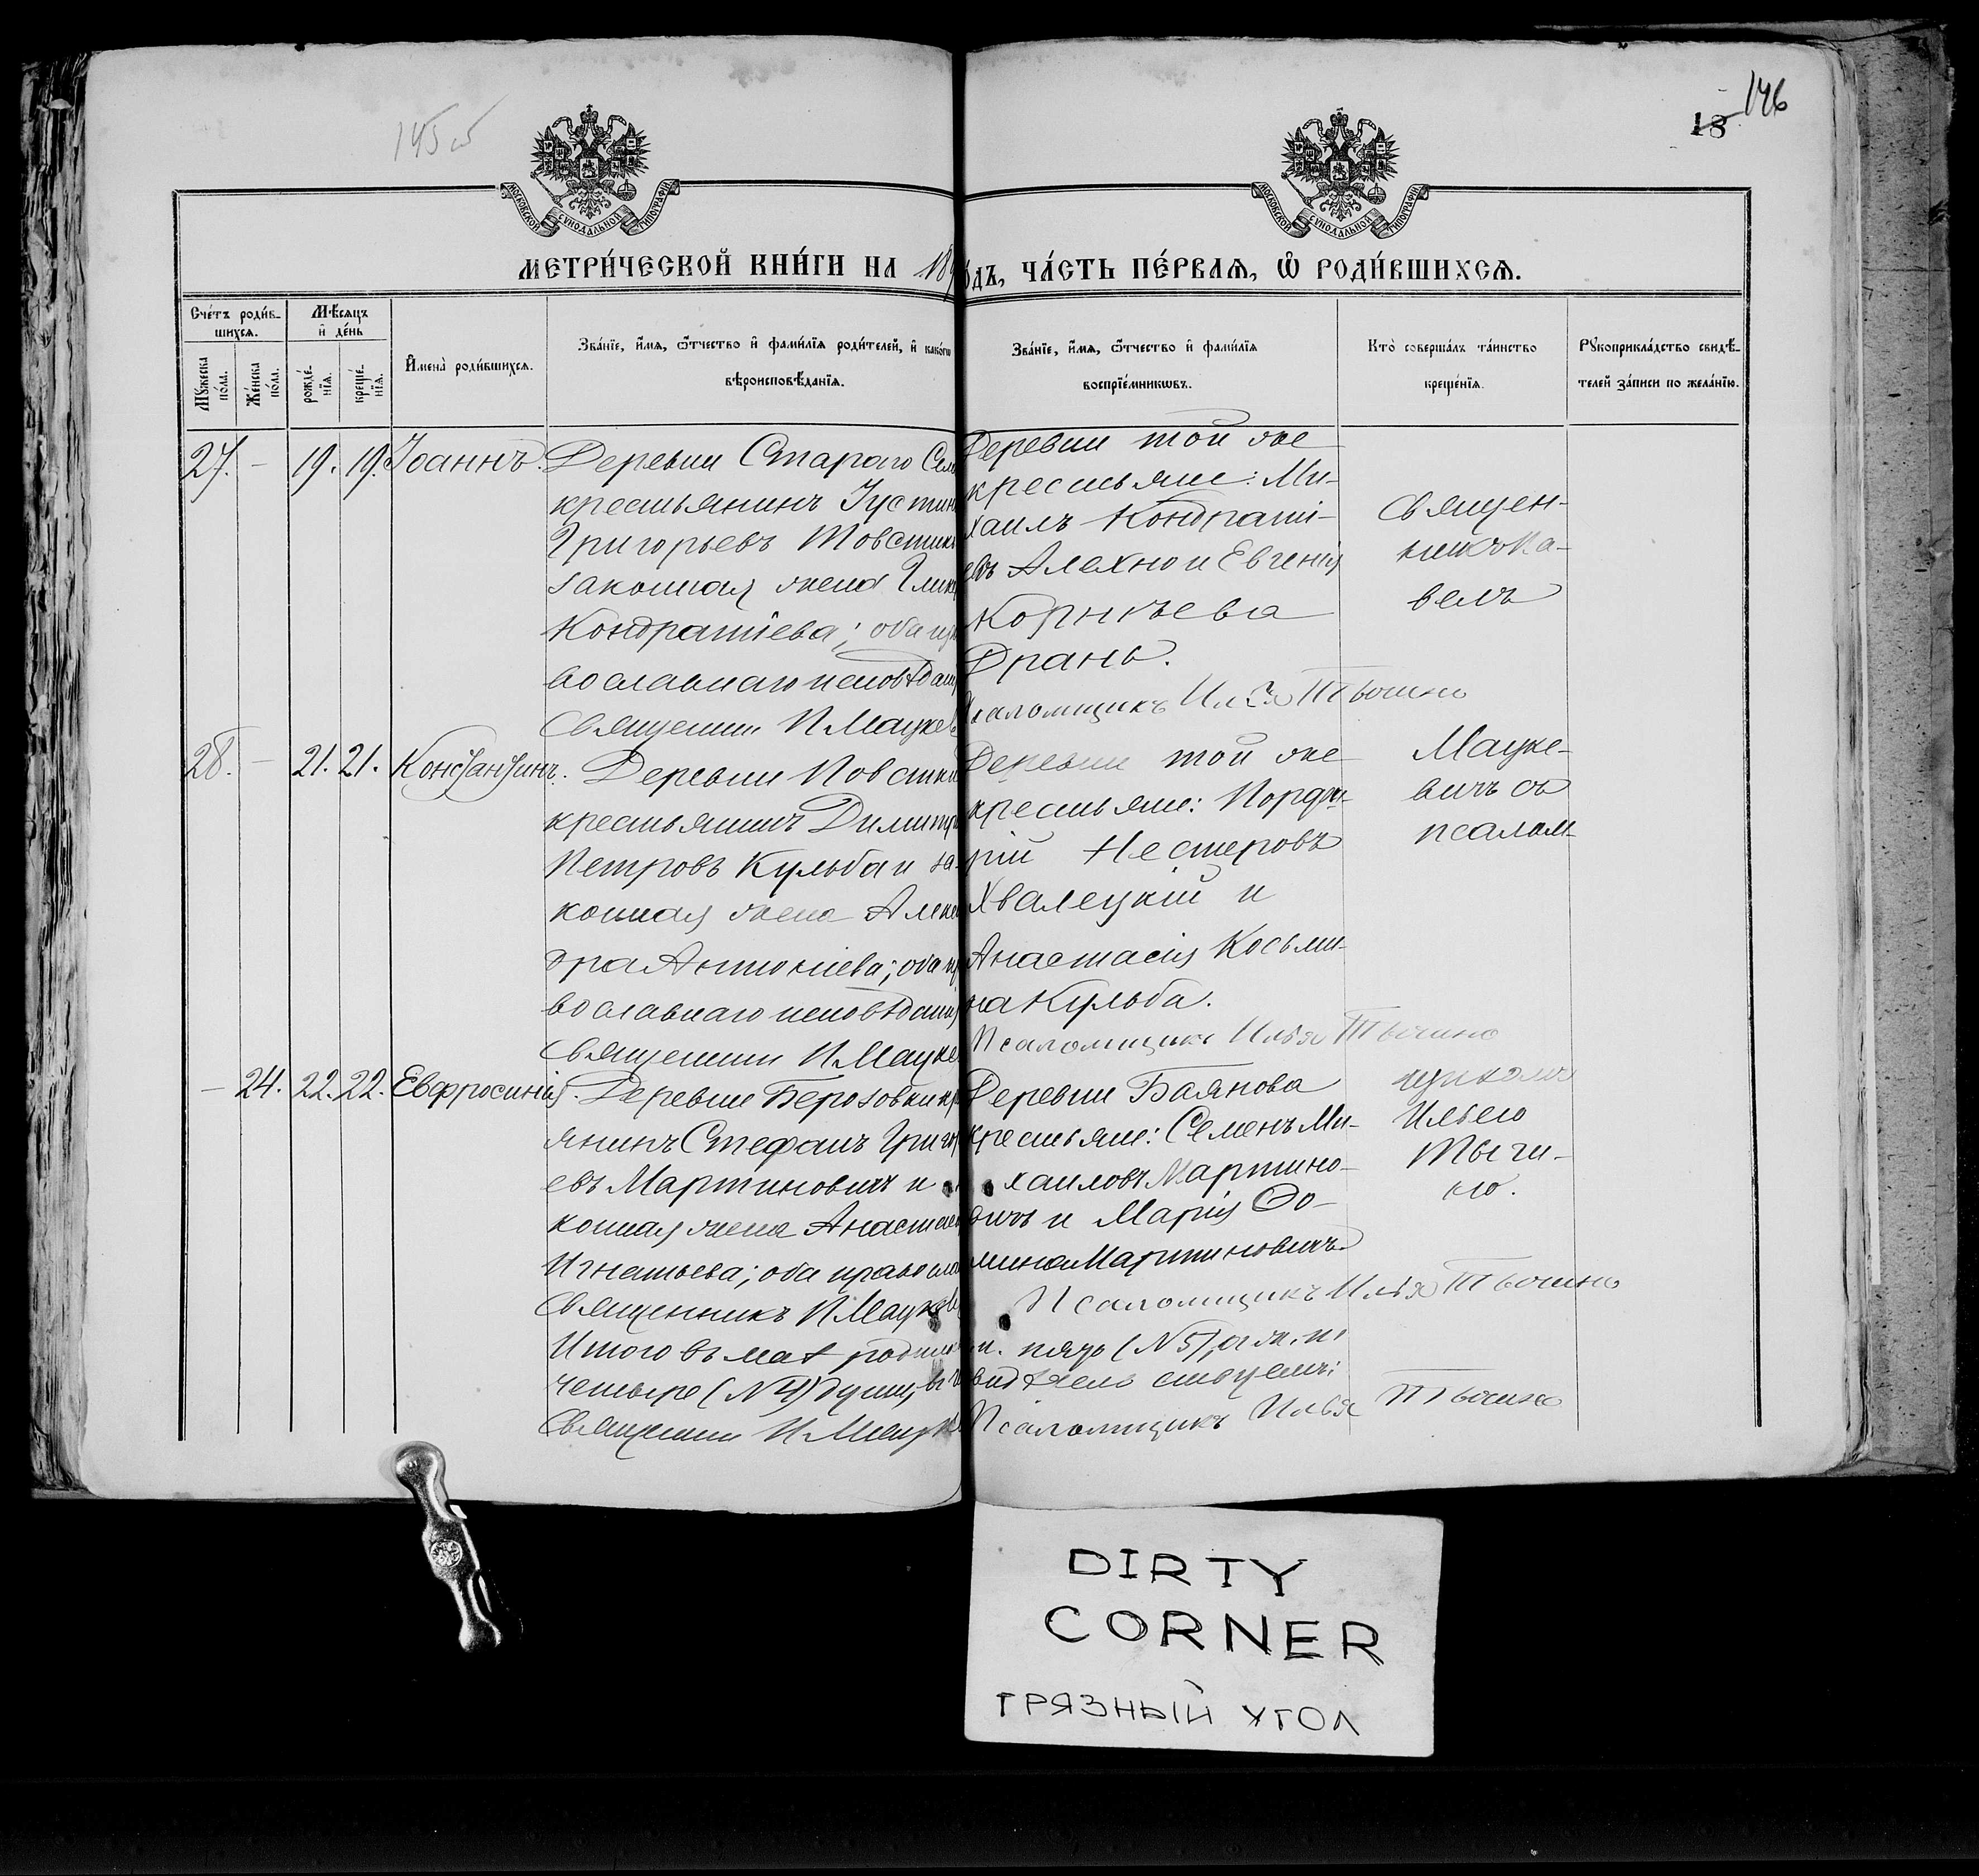 145 об
146
18
МОСКОВСКОЙ СУНОДАЛЬНОЙ ТИПОГРАФІИ
МОСКОВСКОЙ СУНОДАЛЬНОЙ ТИПОГРАФІИ
МЕТРИ́ЧЕСКОЙ КНИ́ГИ НА 189
ОДЪ, ЧА́СТЬ ПЕ́РВАЯ, Ѽ РОДИ́ВШИХСЯ.
Сче́тъ роди́в-
шихся.
Мѣсяцъ
и де́нь
Му́жеска
по́ла.
Же́нска
по́ла.
рожде́-
нія.
креще́-
нія.
Имена̀ роди́вшихся.
Зва́ніе, и́мя, ѻ҆́тчество и фами́лія роди́телей, и како́гѡ
вѣроисповѣ́данія.
Зва́ніе, и́мя, ѻ҆́тчество и фами́лія
воспріе́мникѡвъ.
Кто̀ соверша́лъ та́инство
креще́нія.
Рукоприкла́дство свидѣ́-
телей за́писи по жела́нію.
27. – 19. 19. Іоаннъ.
Деревни Стараго Сел
крестьянинъ Іустинъ
Григорьевъ Товстик
законная жена Глик
Кондратіева; оба пра
вославнаго исповѣдані
Священник П Мацке
Деревни той же
крестьяне: Ми-
хаилъ Кондраті-
евъ Алехно и Евгенія
Корнѣева
Дрань.
Псаломщикъ Илья Тычино
Священ-
никъ Па-
велъ
28. – 21. 21. Константинъ.
Деревни Повстки
крестьянинъ Димитр
Петровъ Кульба и за-
конная жена Алекс
дра Антоніева; оба пр
вославнаго исповѣданія
Священник П Мацке
Деревни той же
крестьяне: Порфи-
рій Нестеровъ
Хвалецкій и
Анастасія Косьми-
на Кульба.
Псаломщикъ Илья Тычино
Мацке-
вичъ съ
псалом-
– 24. 22. 22. Евфросинія.
Деревни Берозовки кр
янинъ Стефанъ Григор
евъ Мартиновичъ и
конная жена Анастасі
Игнатьева; оба правосла
Священникъ П Мацкев
Деревни Баянова
крестьяне: Семенъ Ми-
хаиловъ Мартино-
вичъ и Марія Ѳо-
мина Мартиновичъ
Псаломщикъ Илья Тычино
щикомъ
Ильею
Тычи-
но.
Итого въ маѣ родило
м. п. пять (N 5), а ж. п.
четыре (N 4) души, въ ч
Священник П Мацк
Псаломщикъ Илья Тычино
DIRTY
CORNER
ГРЯЗНЫЙ УГОЛ